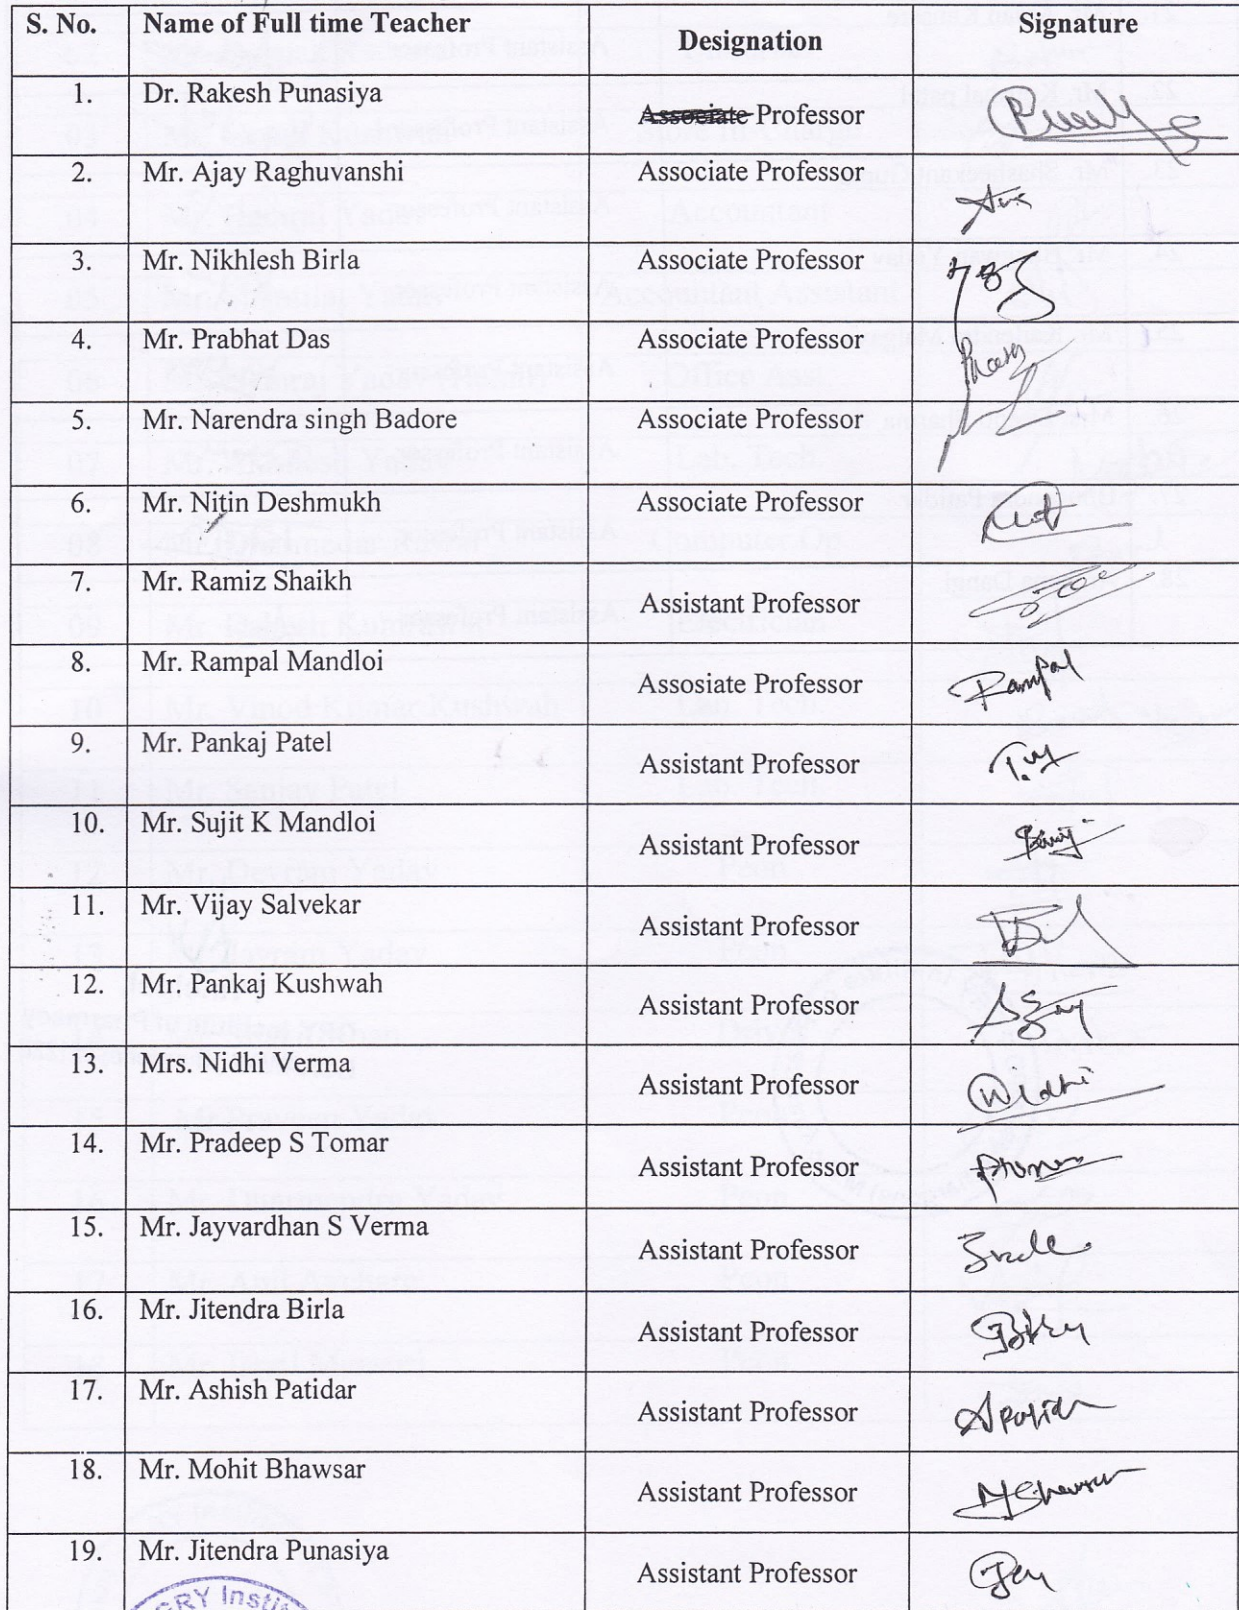 S. No. Name of Full time Teacher Designation Signature
1. Dr. Rakesh Punasiya Associate Professor
2. Mr. Ajay Raghuvanshi Associate Professor
3. Mr. Nikhlesh Birla Associate Professor
4. Mr. Prabhat Das Associate Professor
5. Mr. Narendra singh Badore Associate Professor
6. Mr. Nitin Deshmukh Associate Professor
7. Mr. Ramiz Shaikh Assistant Professor
8. Mr. Rampal Mandloi Assosiate Professor Rampal
9. Mr. Pankaj Patel Assistant Professor
10. Mr. Sujit K Mandloi Assistant Professor
11. Mr. Vijay Salvekar Assistant Professor
12. Mr. Pankaj Kushwah Assistant Professor
13. Mrs. Nidhi Verma Assistant Professor Nidhi
14. Mr. Pradeep S Tomar Assistant Professor
15. Mr. Jayvardhan S Verma Assistant Professor
16. Mr. Jitendra Birla Assistant Professor
17. Mr. Ashish Patidar Assistant Professor
18. Mr. Mohit Bhawsar Assistant Professor
19. Mr. Jitendra Punasiya Assistant Professor